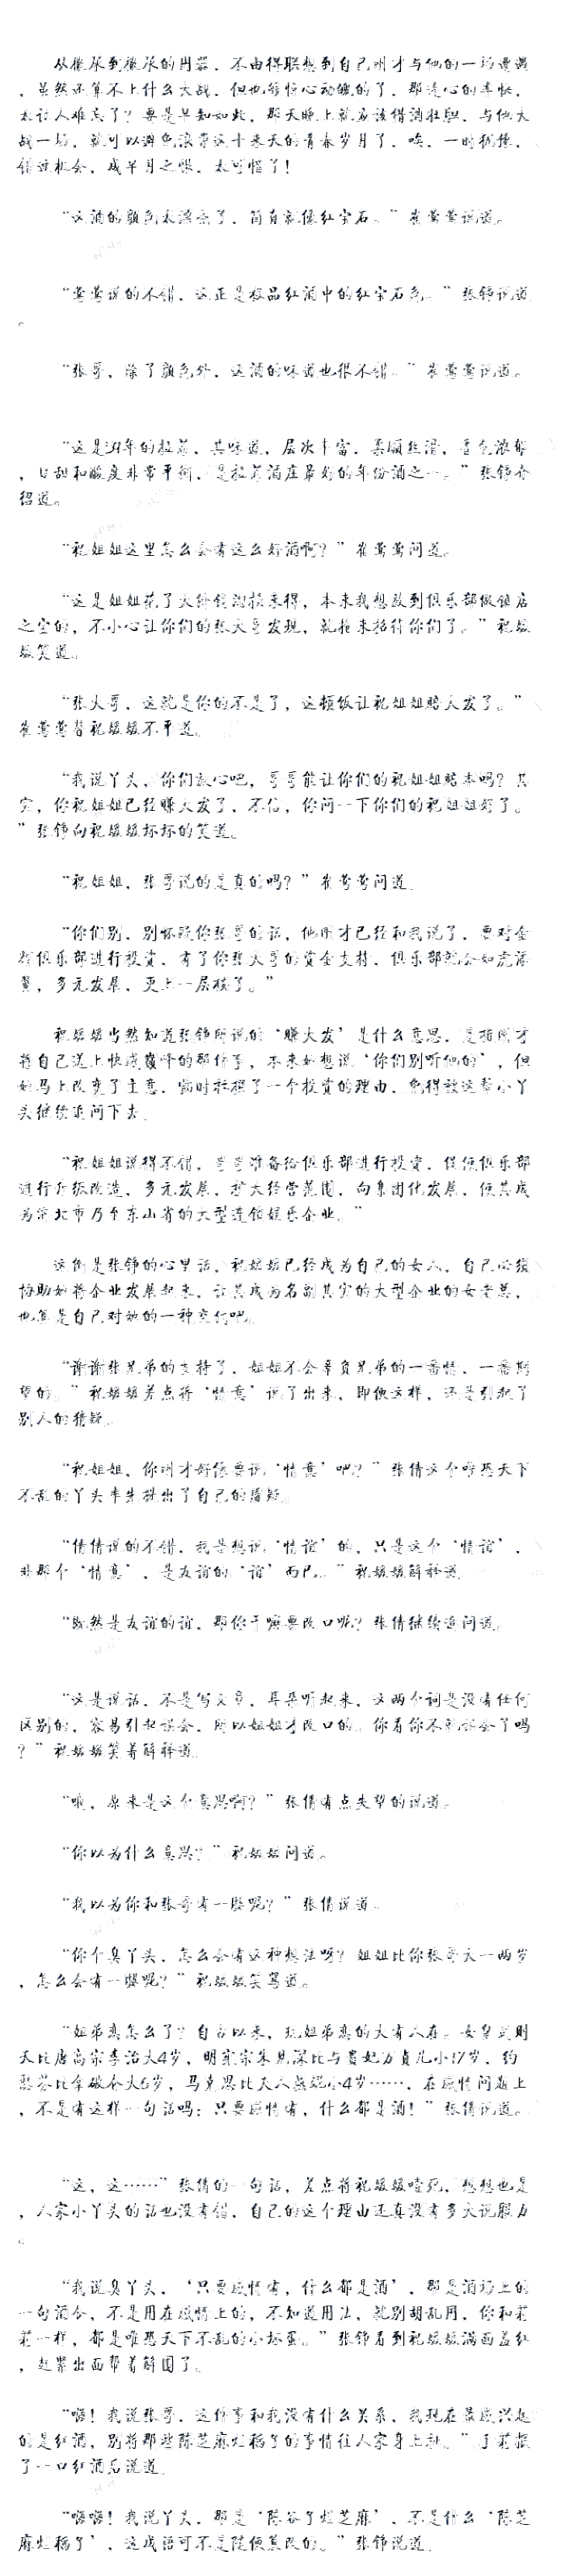 从微尿到微尿的用器，不由得联想到自己刚才与他的一场遭遇
，虽然还算不上什么大战，但也够惊心动魄的了，那透心的爽快，
太让人难忘了？要是早知如此，那天晚上就应该借酒壮胆，与他大
战一场，就可以避免浪费这十来天的青春岁月了，唉，一时犹豫，
错过机会，成半月之恨，太可惜了！
“这酒的颜色太漂亮了，简直就像红宝石。”崔莺莺说道。
“莺莺说的不错，这正是极品红酒中的红宝石色。”张铮说道
。
“张哥，除了颜色外，这酒的味道也很不错。”崔莺莺说道。
“这是59年的拉菲，其味道，层次丰富，柔顺丝滑，香气浓郁
，甘甜和酸度非常平衡，是拉菲酒庄最好的年份酒之一。”张铮介
绍道。
“祝姐姐这里怎么会有这么好酒啊？”崔莺莺问道。
“这是姐姐花了大价钱淘换来得，本来我想放到俱乐部做镇店
之宝的，不小心让你们的张大哥发现，就拖来招待你们了。”祝媛
媛笑道。
“张大哥，这就是你的不是了，这顿饭让祝姐姐赔大发了。”
崔莺莺替祝媛媛不平道。
“我说丫头，你们放心吧，哥哥能让你们的祝姐姐赔本吗？其
实，你祝姐姐已经赚大发了，不信，你问一下你们的祝姐姐好了。
”张铮向祝媛媛坏坏的笑道。
“祝姐姐，张哥说的是真的吗？”崔莺莺问道。
“你们别，别怀疑你张哥的话，他刚才已经和我说了，要对金
俱乐部进行投资，有了你张大哥的资金支持，俱乐部就会如虎添
翼，多元发展，更上一层楼了。”
祝媛媛当然知道张铮所说的‘赚大发’是什么意思，是指刚才
将自己送上快感巅峰的那件事，本来她想说‘你们别听他的’，但
她马上改变了主意，临时转换了一个投资的理由，免得被这帮小丫
头继续追问下去。
“祝姐姐说得不错，哥哥准备给俱乐部进行投资，促使俱乐部
进行升级改造，多元发展，扩大经营范围，向集团化发展，使其成
为济北市乃至东山省的大型连锁娱乐企业。”
这倒是张铮的心里话，祝媛媛已经成为自己的女人，自己必须
协助她将企业发展起来，让其成为名副其实的大型企业的女老总，
也算是自己对她的一种交代吧。
“谢谢张兄弟的支持了，姐姐不会辜负兄弟的一番情，一番期
望的。”祝媛媛差点将‘情意’说了出来，即使这样，还是引起了
别人的猜疑。
“祝姐姐，你刚才好像要说‘情意’吧？”张倩这个唯恐天下
不乱的丫头率先提出了自己的质疑。
“倩倩说的不错，我是想说‘情谊’的，只是这个‘情谊’，
非那个‘情意’，是友谊的‘谊’而已。”祝媛媛解释道。
“既然是友谊的谊，那你干嘛要改口呢？张倩继续追问道。
“这是说话，不是写文章，耳朵听起来，这两个词是没有任何
区别的，容易引起误会，所以姐姐才改口的。你看你不就误会了吗
？”祝媛媛笑着解释道。
“哦，原来是这个意思啊？”张倩有点失望的说道。
“你以为什么意思？”祝媛媛问道。
“我以为你和张哥有一腿呢？”张倩说道。
“你个臭丫头，怎么会有这种想法呀？姐姐比你张哥大一两岁
，怎么会有一腿呢？”祝媛媛笑骂道。
“姐弟恋怎么了？自古以来，玩姐弟恋的大有人在。女皇武则
天比唐高宗李治大4岁，明宪宗朱见深比与贵妃万贞儿小17岁，约
瑟芬比拿破仑大6岁，马克思比夫人燕妮小4岁……，在感情问题上
，不是有这样一句话吗：只要感情有，什么都是酒！”张倩说道。
“这，这……”张倩的一句话，差点将祝媛媛噎死，想想也是
，人家小丫头的话也没有错，自己的这个理由还真没有多大说服力
。
“我说臭丫头，‘只要感情有，什么都是酒’，那是酒场上的
一句酒令，不是用在感情上的，不知道用法，就别胡乱用，你和莉
莉一样，都是唯恐天下不乱的小坏蛋。”张铮看到祝媛媛满面羞红
，赶紧出面帮着解围了。
“嗨！我说张哥，这件事和我没有什么关系，我现在最感兴趣
的是红酒，别将那些陈芝麻烂稻子的事情往人家身上扯。”于莉抿
了一口红酒后说道。
“嗨嗨！我说丫头，那是‘陈谷子烂芝麻’，不是什么‘陈芝
麻烂稻子’，这成语可不是随便篡改的。”张铮说道。